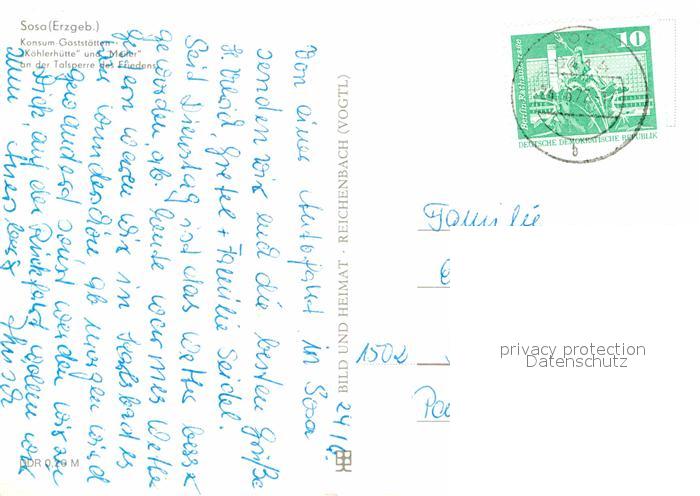 Sosa (Erzgeb.)
Konsum-Gaststätten
"Köhlerhütte" und "Meiler"
an der Talsperre des Friedens
24/6.
Von einer Autofahrt in Sosa
senden wir euch die besten Grüße
Gretel + Familie Seidel.
Seid Dienstag ist das Wetter besser
geworden, ab heute warmes Wetter
gestern waren wir in Karlsbad es
war wunderschön ab morgen wird
gewandert sonst werden wir zu
dick, auf der Rückfahrt wollen wir
zum
DDR 0,20 M
BILD UND HEIMAT · REICHENBACH (VOGTL)
10
Berlin-Rathausstraße
DEUTSCHE DEMOKRATISCHE REPUBLIK
b
Familie
1502
privacy protection
Datenschutz